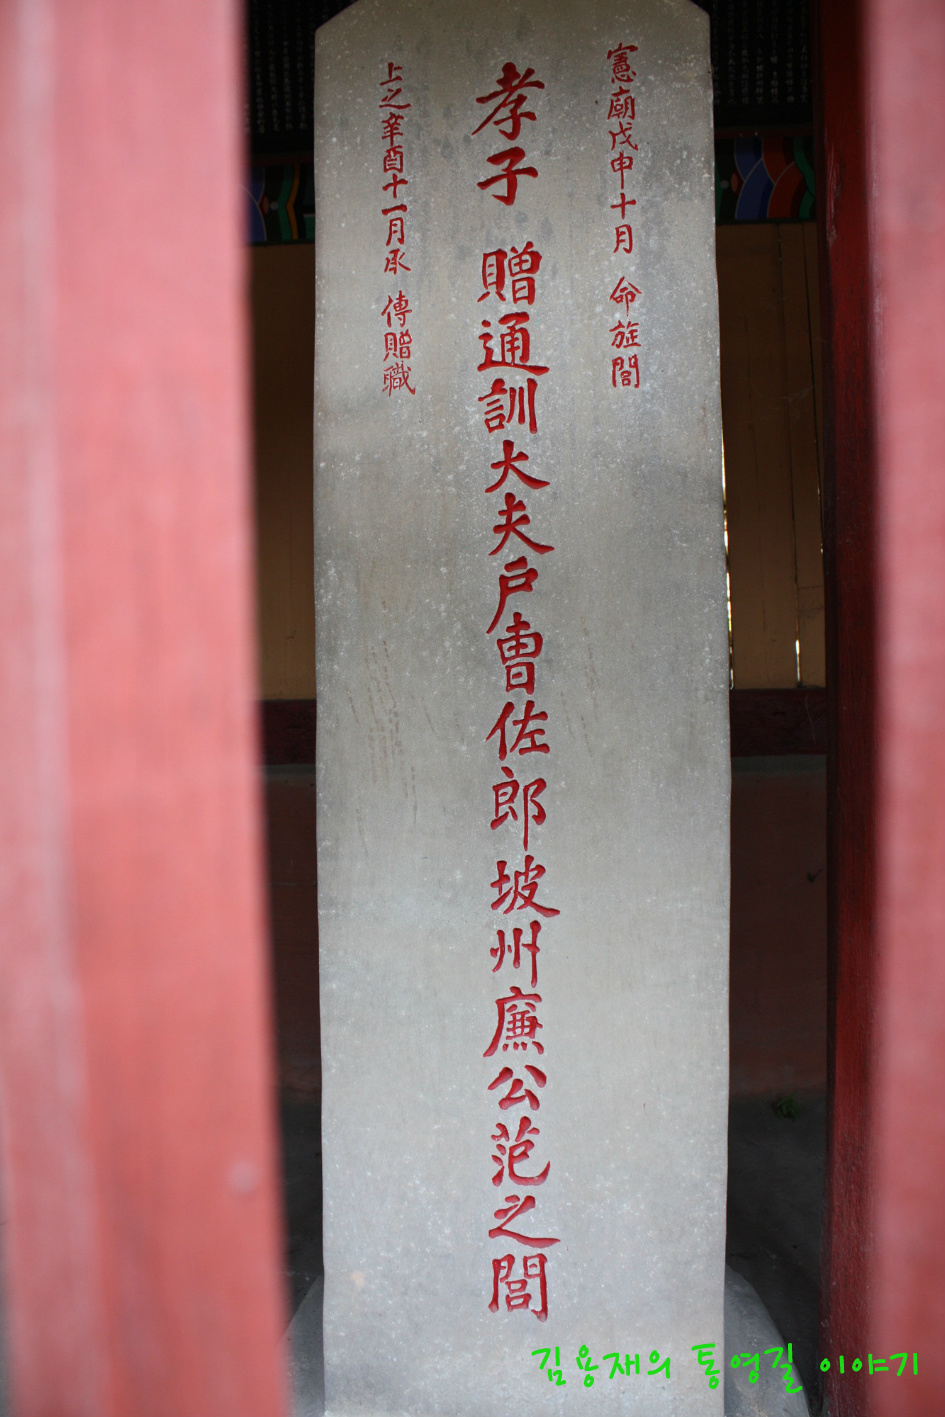 憲廟戊申十月 命旌閭
孝子 贈通訓大夫戶曹佐郎坡州廉公范之閭
上之辛酉十一月承 傳贈職
김용재의 통영길 이야기